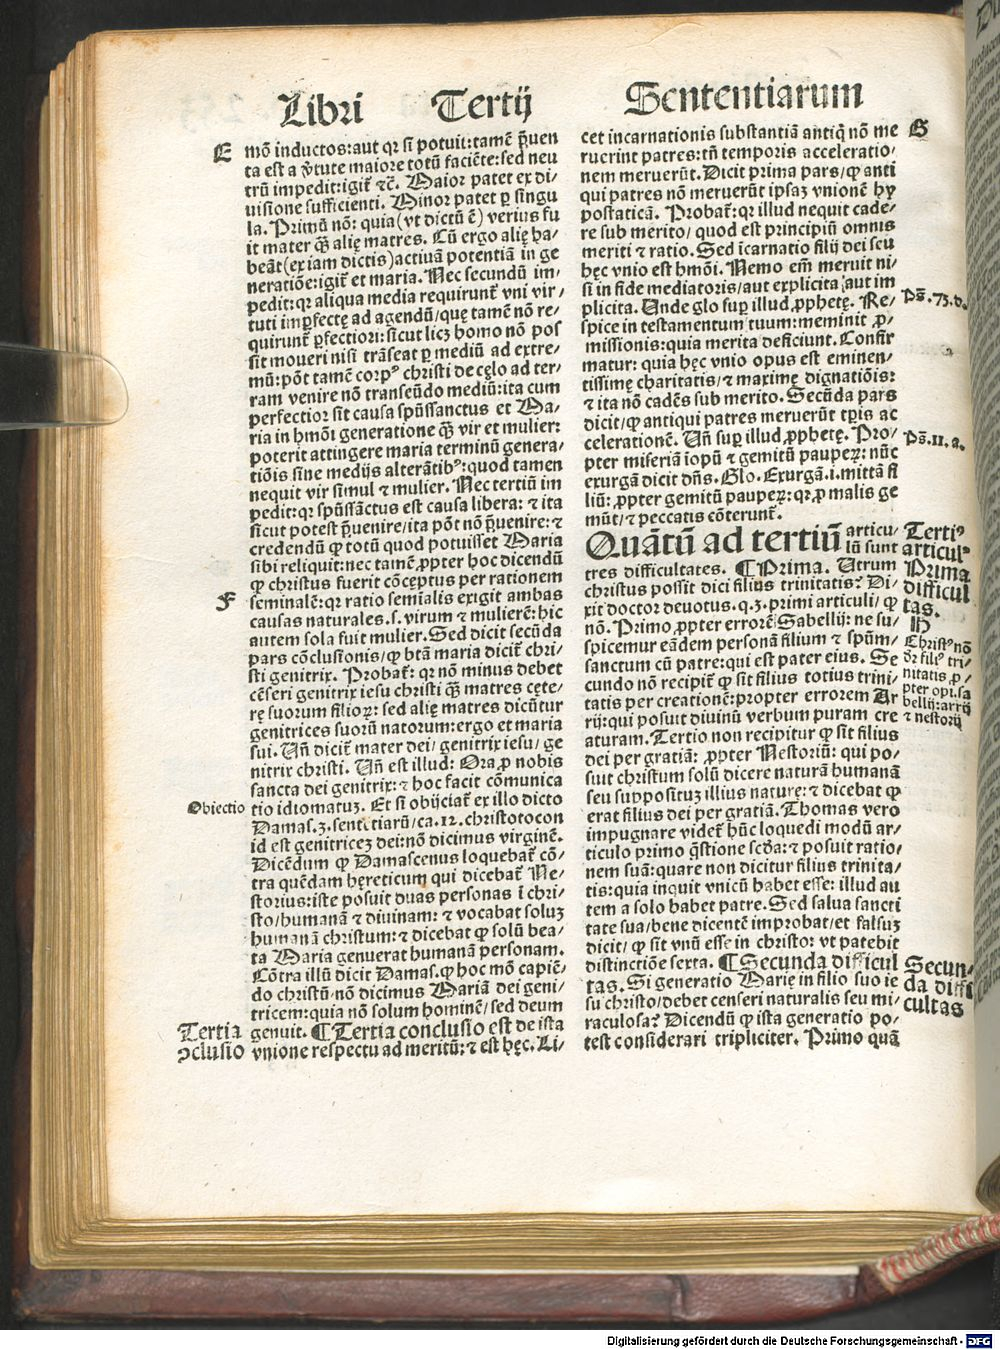 Libri Tertij Sententiarum
E
mō inductos: aut qr si potuit: tamē p̄uen
ta est a v̄tute maiore totū faciēte: sed neu
trū impedit: igit̄ ⁊c̄. Maior patet ex di/
uisione sufficienti. Minor patet ꝑ singu
la. Primū nō: quia (vt dictū ē) verius fu
it mater q̄ȝ alię matres. Cū ergo alię ha/
beāt (ex iam dictis) actiuā potentiā in ge
neratiōe: igit̄ et maria. Nec secundū im/
pedit: qr aliqua media requirunt̄ vni vir/
tuti imꝑfectę ad agendū/ quę tamē nō re/
quirunt̄ ꝑfectiori: sicut licȝ homo nō pos
sit moueri nisi trāseat ꝑ mediū ad extre/
mū: pōt tamē corpꝰ christi de cęlo ad ter/
ram venire nō transeūdo mediū: ita cum
perfectior sit causa spūssanctus et Ma/
ria in hmōi generatione q̄ȝ vir et mulier:
poterit attingere maria terminū genera/
tiōis sine medijs alterātibꝰ: quod tamen
nequit vir simul ⁊ mulier. Nec tertiū im
pedit: qr spūssāctus est causa libera: ⁊ ita
sicut potest p̄uenire/ ita pōt nō p̄uenire: ⁊
credendū ꝙ totū quod potuisset Maria
sibi reliquit: nec tamē ꝓpter hoc dicendū
ꝙ christus fuerit cōcęptus per rationem
F
seminalē: qr ratio semīalis exigit ambas
causas naturales. s. virum ⁊ mulierē: hic
autem sola fuit mulier. Sed dicit secūda
pars cōclusionis/ ꝙ btā maria dicit̄ chri/
sti genitrix. Probat̄: qr nō minus debet
cēseri genitrix iesu christi q̄ȝ matres cęte/
rę suorum filioꝝ: sed alię matres dicūtur
genitrices suorū natorum: ergo et maria
sui. Uñ dicit̄ mater dei/ genitrix iesu/ ge
nitrix christi. Uñ est illud: Ora ꝓ nobis
sancta dei genitrix: ⁊ hoc facit cōmunica
Obiectio
tio idiomatuȝ. Et si obijciat̄ ex illo dicto
Damas. 3. sentētiarū/ ca. 12. christotocon
id est genitriceȝ dei: nō dicimus virginē.
Dicēdum ꝙ Damascenus loquebat̄ cō/
tra quēdam hęreticum qui dicebat̄ Ne/
storius: iste posuit duas personas ī chri/
sto/ humanā ⁊ diuinam: ⁊ vocabat soluȝ
humanā christum: ⁊ dicebat ꝙ solū bea/
ta Maria genuerat humanā personam.
Cōtra illū dicit Damas. ꝙ hoc mō capiē/
do christū: nō dicimus Mariā dei geni/
tricem: quia nō solum hominē/ sed deum
Tertia
genuit. ¶ Tertia conclusio est de ista
ↄclusio
vnione respectu ad meritū: ⁊ est hęc. Li/
G
cet incarnationis substantiā antiq̄ nō me
ruerint patres: tñ temporis acceleratio/
nem meruerūt. Dicit prima pars/ ꝙ anti
qui patres nō meruerūt ipsaȝ vnionē hy
postaticā. Probat̄: qr illud nequit cade/
re sub merito/ quod est principiū omnis
meriti ⁊ ratio. Sed īcarnatio filij dei seu
hęc vnio est hmōi. Nemo em̄ meruit ni/
si in fide mediatoris/ aut explicita/ aut im
plicita. Unde glo suꝑ illud ꝓphetę. Re/
Ps̄. 73. d.
spice in testamentum tuum: meminit ꝓ/
missionis: quia merita deficiunt. Confir
matur: quia hęc vnio opus est eminen/
tissimę charitatis/ ⁊ maximę dignatiōis:
⁊ ita nō cadēs sub merito. Secūda pars
dicit/ ꝙ antiqui patres meruerūt tꝑis ac
celerationē. Uñ suꝑ illud ꝓphetę. Pro/
Ps̄. 11. a.
pter miseriā īopū ⁊ gemitū pauperꝝ: nūc
exurgā dicit dñs. Glo. Exurgā. i. mittā fi
liū: ꝓpter gemitū pauperꝝ: qr ꝓ malis ge
mūt/ ⁊ peccatis cōterunt̄.
Quātū ad tertiū articu/
Tertiꝰ
lū sunt
articulꝰ
tres difficultates. ¶ Prima. Utrum
Prima
christus possit dici filius trinitatis? Di/
difficul
xit doctor deuotus. q. 3. primi articuli/ ꝙ
tas.
nō. Primo ꝓpter errorē Sabellij: ne su/
H
spicemur eādem personā filium ⁊ spūm/
Christꝰ nō
sanctum cū patre: qui est pater eius. Se
dr̄ filiꝰ tri/
cundo nō recipit̄ ꝙ sit filius totius trini/
nitatis ꝓ/
tatis per creationē: propter errorem Ar
pter opi. sa
rij: qui posuit diuinū verbum puram cre
bellij: arrij
aturam. Tertio non recipitur ꝙ sit filius
⁊ nestorij
dei per gratiā: ꝓpter Nestoriū: qui po/
suit christum solū dicere naturā humanā
seu suppositum illius naturę: ⁊ dicebat ꝙ
erat filius dei per gratiā. Thomas vero
impugnare videt̄ hūc loquedi modū ar/
ticulo primo q̄stione scd̄a: ⁊ posuit ratio/
nem suā: quare non dicitur filius trinita/
tis: quia inquit vnicū habet esse: illud au
tem a solo habet patre. Sed salua sancti
tate sua/ bene dicentē improbat/ et falsuȝ
dicit/ ꝙ sit vnū esse in christo: vt patebit
distinctiōe sexta. ¶ Secunda difficul
Secun/
tas. Si generatio Marię in filio suo ie
da diffi
su christo/ debet censeri naturalis seu mi/
cultas
raculosa? Dicendū ꝙ ista generatio po/
test considerari tripliciter. Primo quā
Digitalisierung gefördert durch die Deutsche Forschungsgemeinschaft - DFG